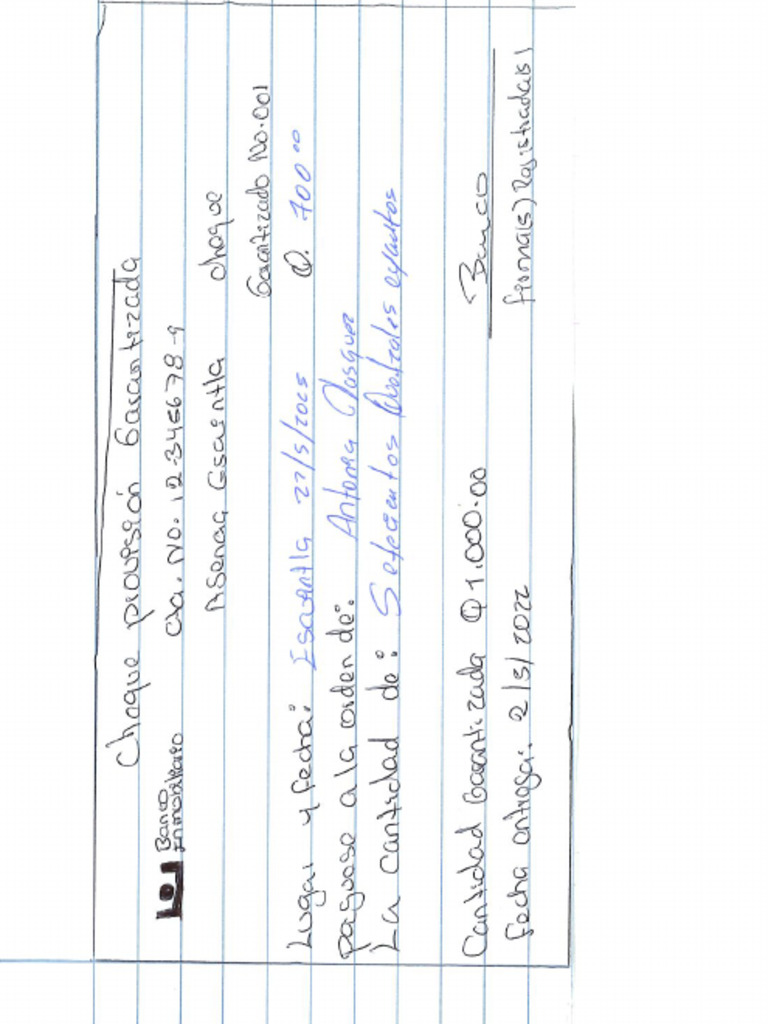 Cheque provisión Garantizada
Banco
Inmobiliario
Cta. No. 12-345678-9
Agencia Escuintla
cheque
Garantizado No.001
Lugar y fecha: Escuintla 27/5/2025
Q. 700.00
páguese a la orden de: Antonia Vasquez
La cantidad de: Setecientos Quetzales exactos
Cantidad Garantizada Q 1,000.00
Banco
Fecha entrega: 2/5/2022
firma(s) Registrada(s)